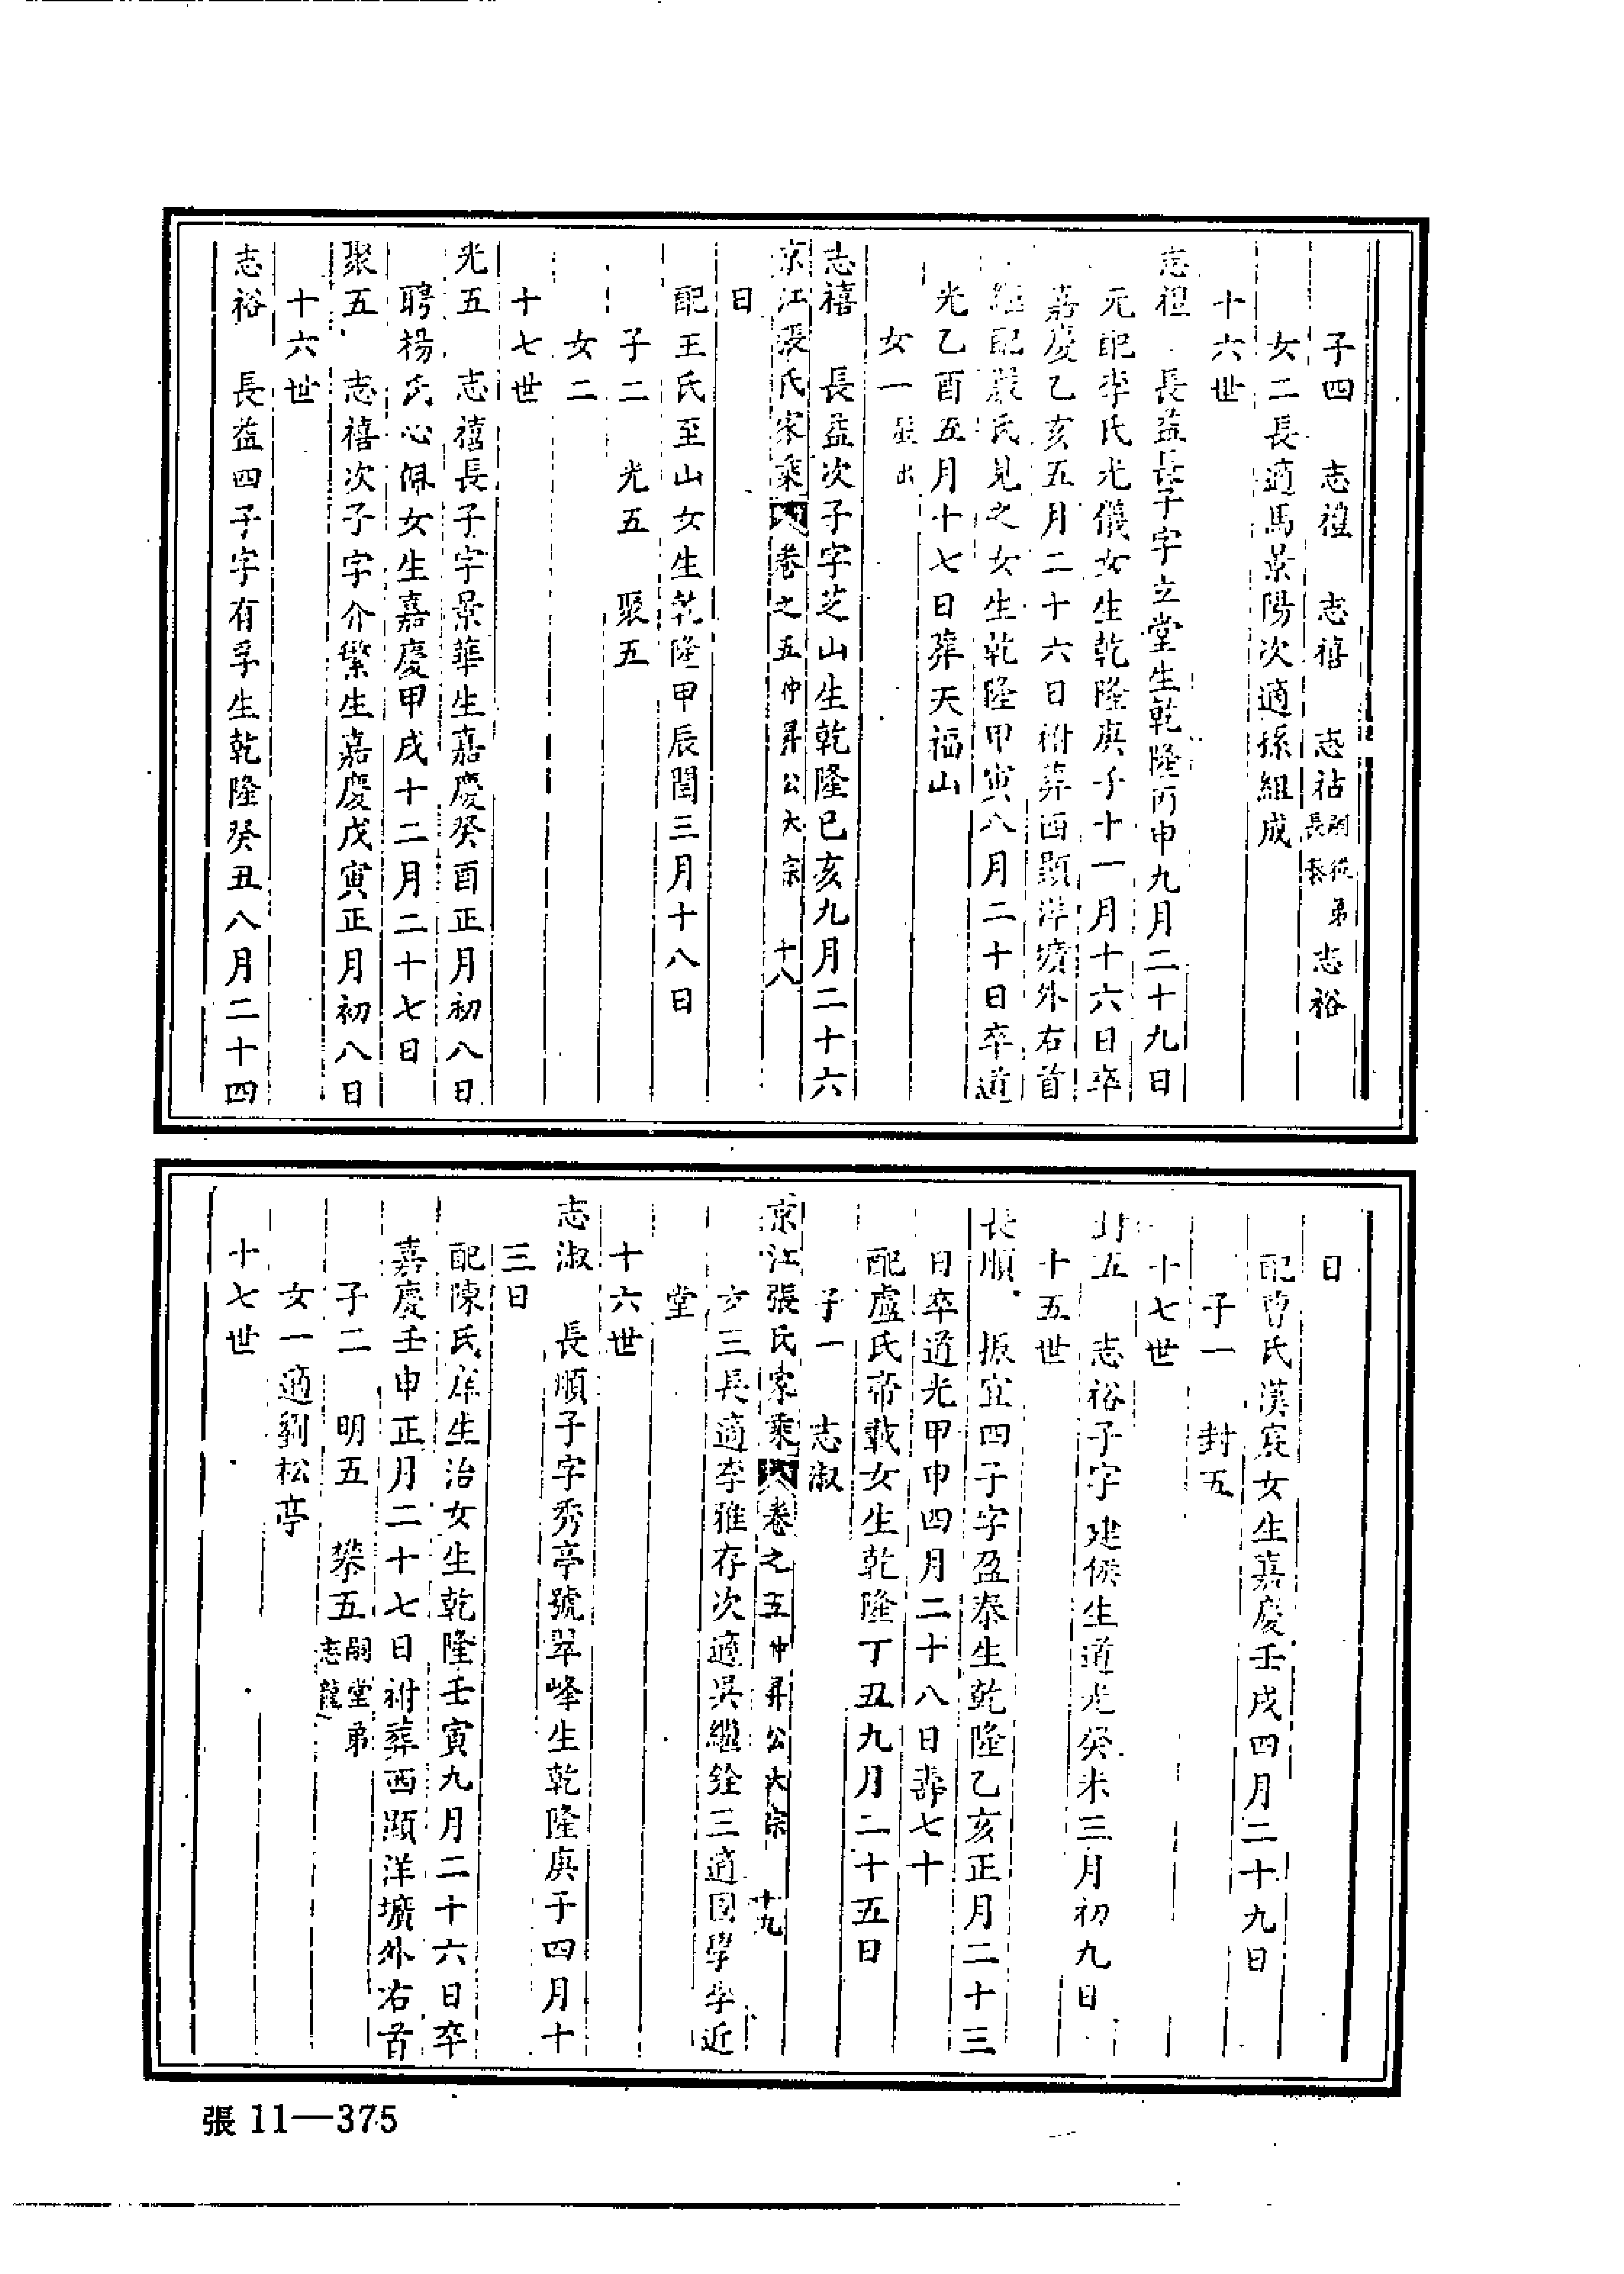 子四 志禮 志禧 志祜嗣從弟長泰 志裕
女二長適馬景陽次適孫組成
十六世
志禮 長益長子字立堂生乾隆丙申九月二十九日
元配李氏光儀女生乾隆庚子十一月十六日卒
嘉慶乙亥五月二十六日祔葬西顯洋壙外右首
繼配嚴氏見之女生乾隆甲寅八月二十日卒道
光乙酉五月十七日葬天福山
女一 出
志禧 長益次子字芝山生乾隆己亥九月二十六
京江張氏家乘 卷之五 仲昇公大宗 十八
日
配王氏至山女生乾隆甲辰閏三月十八日
子二 光五 聚五
女二
十七世
光五 志禧長子字景華生嘉慶癸酉正月初八日
聘楊氏心佩女生嘉慶甲戌十二月二十七日
聚五 志禧次子字介繁生嘉慶戊寅正月初八日
十六世
志裕 長益四子字有孚生乾隆癸丑八月二十四
日
配曹氏漢宸女生嘉慶壬戌四月二十九日
子一 封五
十七世
封五 志裕子字建侯生道光癸未三月初九日
十五世
長順 振宜四子字盈泰生乾隆乙亥正月二十三
日卒道光甲申四月二十八日壽七十
配盧氏帝載女生乾隆丁丑九月二十五日
子一 志淑
京江張氏家乘 卷之五 仲昇公大宗 十九
女三長適李雅存次適吳繼銓三適國學李近
堂
十六世
志淑 長順子字秀亭號翠峰生乾隆庚子四月十
三日
配陳氏庠生治女生乾隆壬寅九月二十六日卒
嘉慶壬申正月二十七日祔葬西顯洋壙外右首
子二 明五 攀五嗣堂弟志龍
女一適劉松亭
十七世
張 11—375